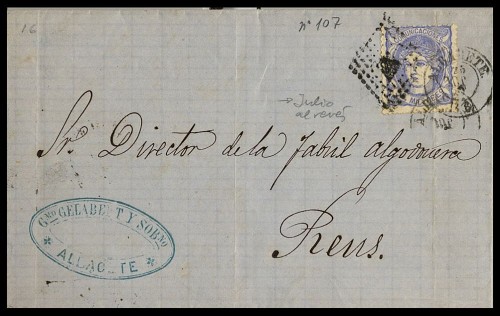 16
nº 107
COMUNICACIONES
→ Julio
al revés
Sr. Director de la Fabril algodonera
Reus.
GMO GELABERT Y SOBNO
ALBACETE